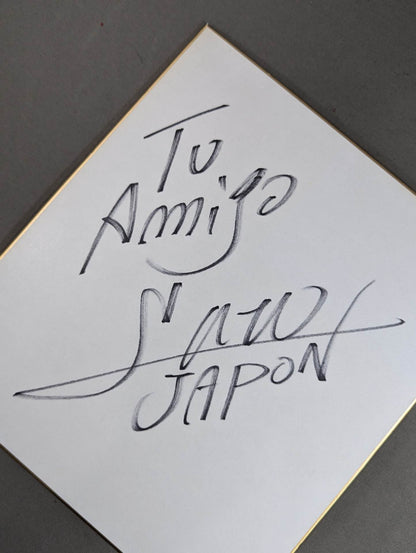 Tu
Amigo
JAPON